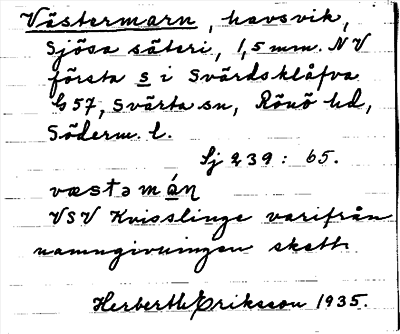 Västermarn, havsvik,
Sjösa säteri, 1,5 mm. NV
första s i Svärdsklåfva
G 57, Svärta sn, Rönö hd,
Söderm. l.
Sj 239: 65.
væstə mán
VSV Kvisslinge varifrån
namngivningen skett.
Herberth Eriksson 1935.